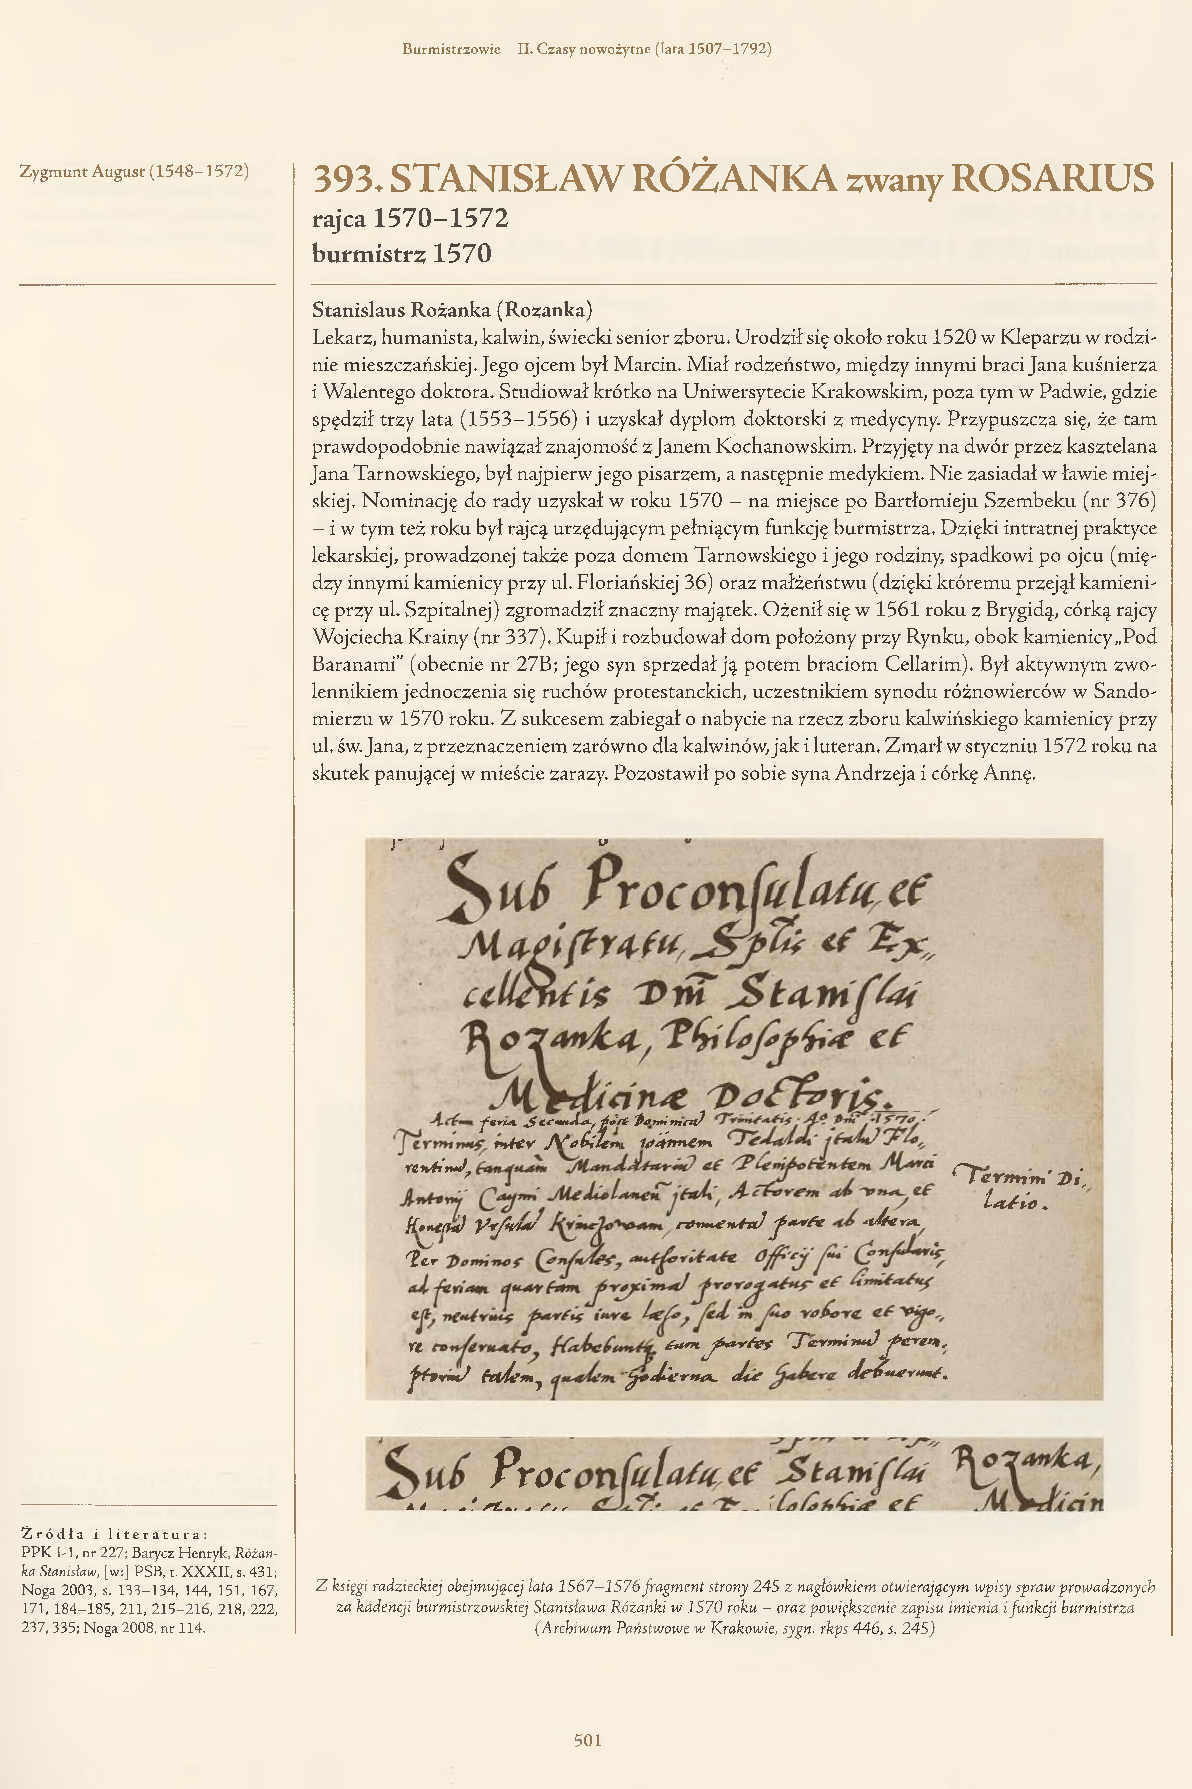 Burmistrzowie II. Czasy nowożytne (lata 1507–1792)
Zygmunt August (1548–1572)
393. STANISŁAW RÓŻANKA zwany ROSARIUS
rajca 1570–1572
burmistrz 1570
Stanislaus Rożanka (Rozanka)
Lekarz, humanista, kalwin, świecki senior zboru. Urodził się około roku 1520 w Kleparzu w rodzi-
nie mieszczańskiej. Jego ojcem był Marcin. Miał rodzeństwo, między innymi braci Jana kuśnierza
i Walentego doktora. Studiował krótko na Uniwersytecie Krakowskim, poza tym w Padwie, gdzie
spędził trzy lata (1553–1556) i uzyskał dyplom doktorski z medycyny. Przypuszcza się, że tam
prawdopodobnie nawiązał znajomość z Janem Kochanowskim. Przyjęty na dwór przez kasztelana
Jana Tarnowskiego, był najpierw jego pisarzem, a następnie medykiem. Nie zasiadał w ławie miej-
skiej. Nominację do rady uzyskał w roku 1570 – na miejsce po Bartłomieju Szembeku (nr 376)
– i w tym też roku był rajcą urzędującym pełniącym funkcję burmistrza. Dzięki intratnej praktyce
lekarskiej, prowadzonej także poza domem Tarnowskiego i jego rodziny, spadkowi po ojcu (mię-
dzy innymi kamienicy przy ul. Floriańskiej 36) oraz małżeństwu (dzięki któremu przejął kamieni-
cę przy ul. Szpitalnej) zgromadził znaczny majątek. Ożenił się w 1561 roku z Brygidą, córką rajcy
Wojciecha Krainy (nr 337). Kupił i rozbudował dom położony przy Rynku, obok kamienicy „Pod
Baranami” (obecnie nr 27B; jego syn sprzedał ją potem braciom Cellarim). Był aktywnym zwo-
lennikiem jednoczenia się ruchów protestanckich, uczestnikiem synodu różnowierców w Sando-
mierzu w 1570 roku. Z sukcesem zabiegał o nabycie na rzecz zboru kalwińskiego kamienicy przy
ul. św. Jana, z przeznaczeniem zarówno dla kalwinów, jak i luteran. Zmarł w styczniu 1572 roku na
skutek panującej w mieście zarazy. Pozostawił po sobie syna Andrzeja i córkę Annę.
Sub Proconſulatu, et
Magiſtratu, Sptłis et Ex„
cellentis Dnī Staniſlai
Rozanka, Philoſophiæ et
Medicinæ Doctoris.
Actum feria Secunda, poſt Dominicā Trinitatis. Aº. Dni. 1570.
Terminus, inter Nobilem Joannem Tedaldi italū Flo„
rentinū, tanquam Mandatariū et Plenipotentem Marci
Antonij Caymi Mediolanen̄ itali, Actorem ab una, et
Honeſtā Vrſulā parte ab altera,
Per Dominos Conſules, authoritate Officij ſui Conſularis,
ad feriam quartam proximā prorogatus et limitatus
eſt, neutrius partis iure læſo, ſed in ſuo robore et vigo„
re conſeruato, Habebuntq; tum partes Terminū perem„
ptoriū talem, qualem hodierna die habere debuerunt.
Termini Di„
latio.
Sub Proconſulatu, et Staniſlai Rozanka,
Źródła i literatura:
PPK I-1, nr 227; Barycz Henryk, Różan-
ka Stanisław, [w:] PSB, t. XXXII, s. 431;
Noga 2003, s. 133–134, 144, 151, 167,
171, 184–185, 211, 215–216, 218, 222,
237, 335; Noga 2008, nr 114.
Z księgi radzieckiej obejmującej lata 1567–1576 fragment strony 245 z nagłówkiem otwierającym wpisy spraw prowadzonych
za kadencji burmistrzowskiej Stanisława Różanki w 1570 roku – oraz powiększenie zapisu imienia i funkcji burmistrza
(Archiwum Państwowe w Krakowie, sygn. rkps 446, s. 245)
501